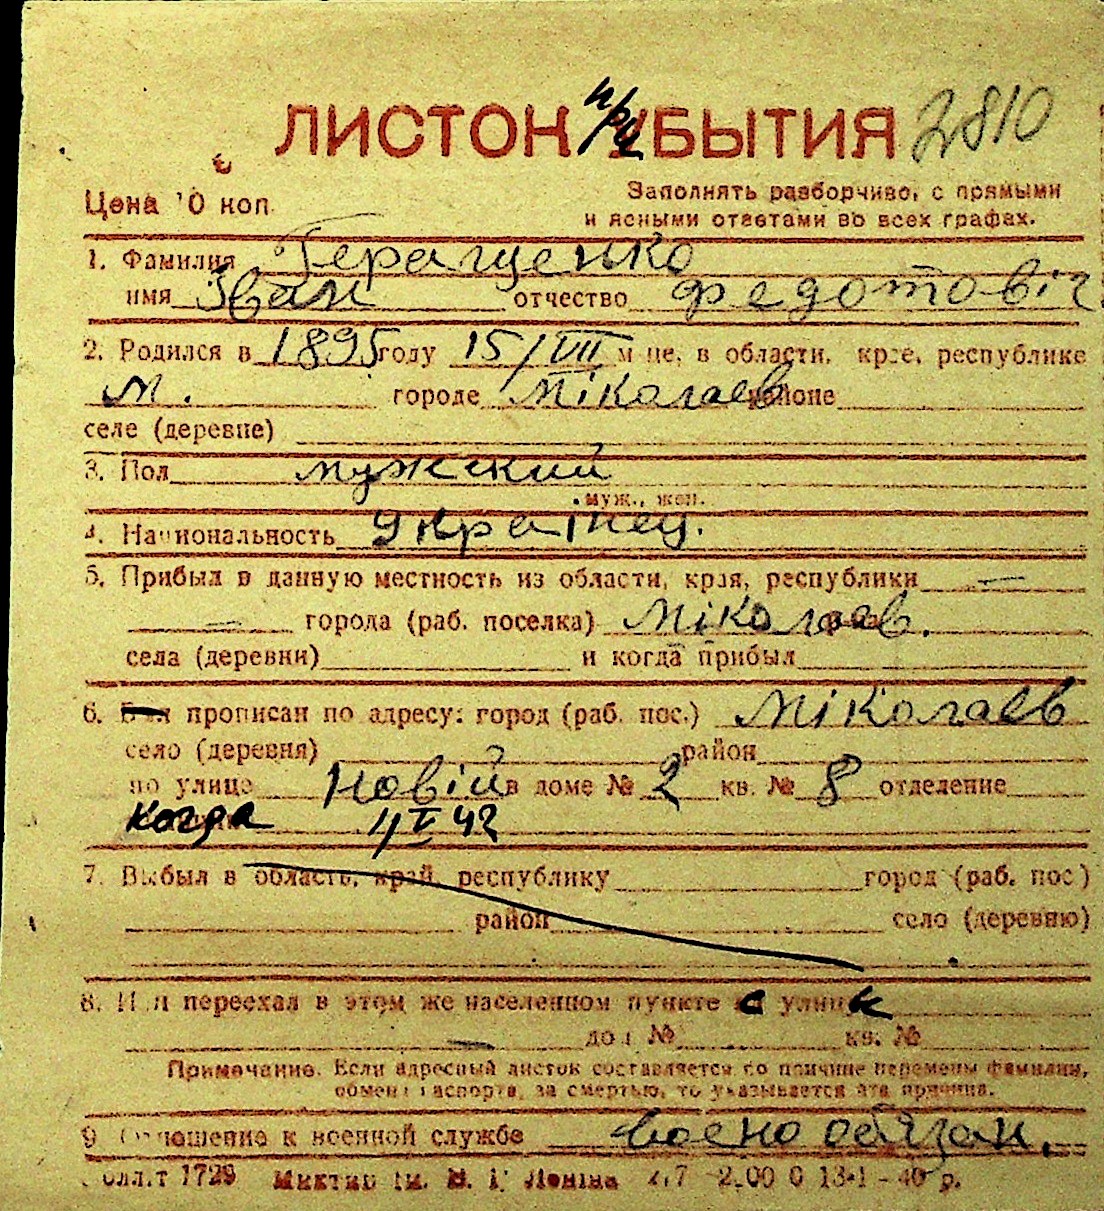 ЛИСТОК при УБЫТИЯ 2810
Цена 10 коп. Заполнять разборчиво, с прямыми
и ясными ответами во всех графах.
1. Фамилия Геращенко
имя Іван отчество Федотовіч
2. Родился в 1895 году 15/VII м-це, в области, крае, республике
М. городе Міколаев районе
селе (деревне)
3. Пол мужский
муж., жен.
4. Национальность Украінец.
5. Прибыл в данную местность из области, края, республики —
— города (раб. поселка) Міколаев.
села (деревни) и когда прибыл
6. Был прописан по адресу: город (раб. пос.) Міколаев
село (деревня) район
по улице Новій в доме № 2 кв. № 8 отделение
когда 42
7. Выбыл в область, край, республику город (раб. пос.)
район село (деревню)
8. Или переехал в этом же населенном пункте с улик
дом № кв. №
Примечание. Если адресный листок составляется по причине перемены фамилии,
обмена паспорта, за смертью, то указывается эта причина.
9. Отношение к военной службе воено обязан.
1729 Ленина 40 р.